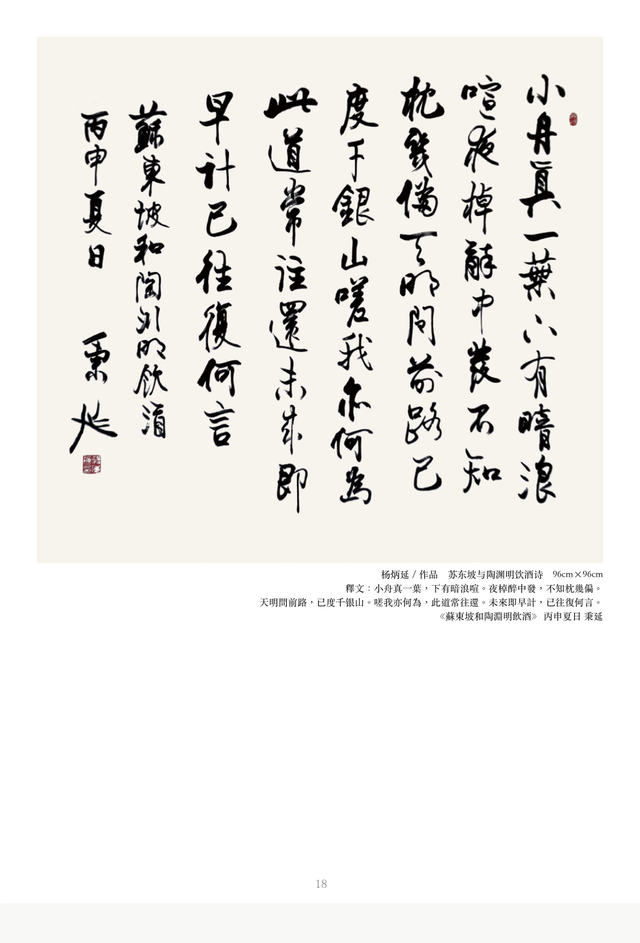 小舟真一葉下有暗浪
喧夜棹醉中發不知
枕幾偏天明問前路已
度千銀山嗟我亦何為
此道常往還未來即
早計已往復何言
蘇東坡和陶渕明飲酒
丙申夏日 秉延
杨炳延 / 作品 苏东坡与陶渊明饮酒诗 96cm×96cm
釋文：小舟真一葉，下有暗浪喧。夜棹醉中發，不知枕幾偏。
天明問前路，已度千银山。嗟我亦何為，此道常往還。未來即早計，已往復何言。
《蘇東坡和陶淵明飲酒》 丙申夏日 秉延
18